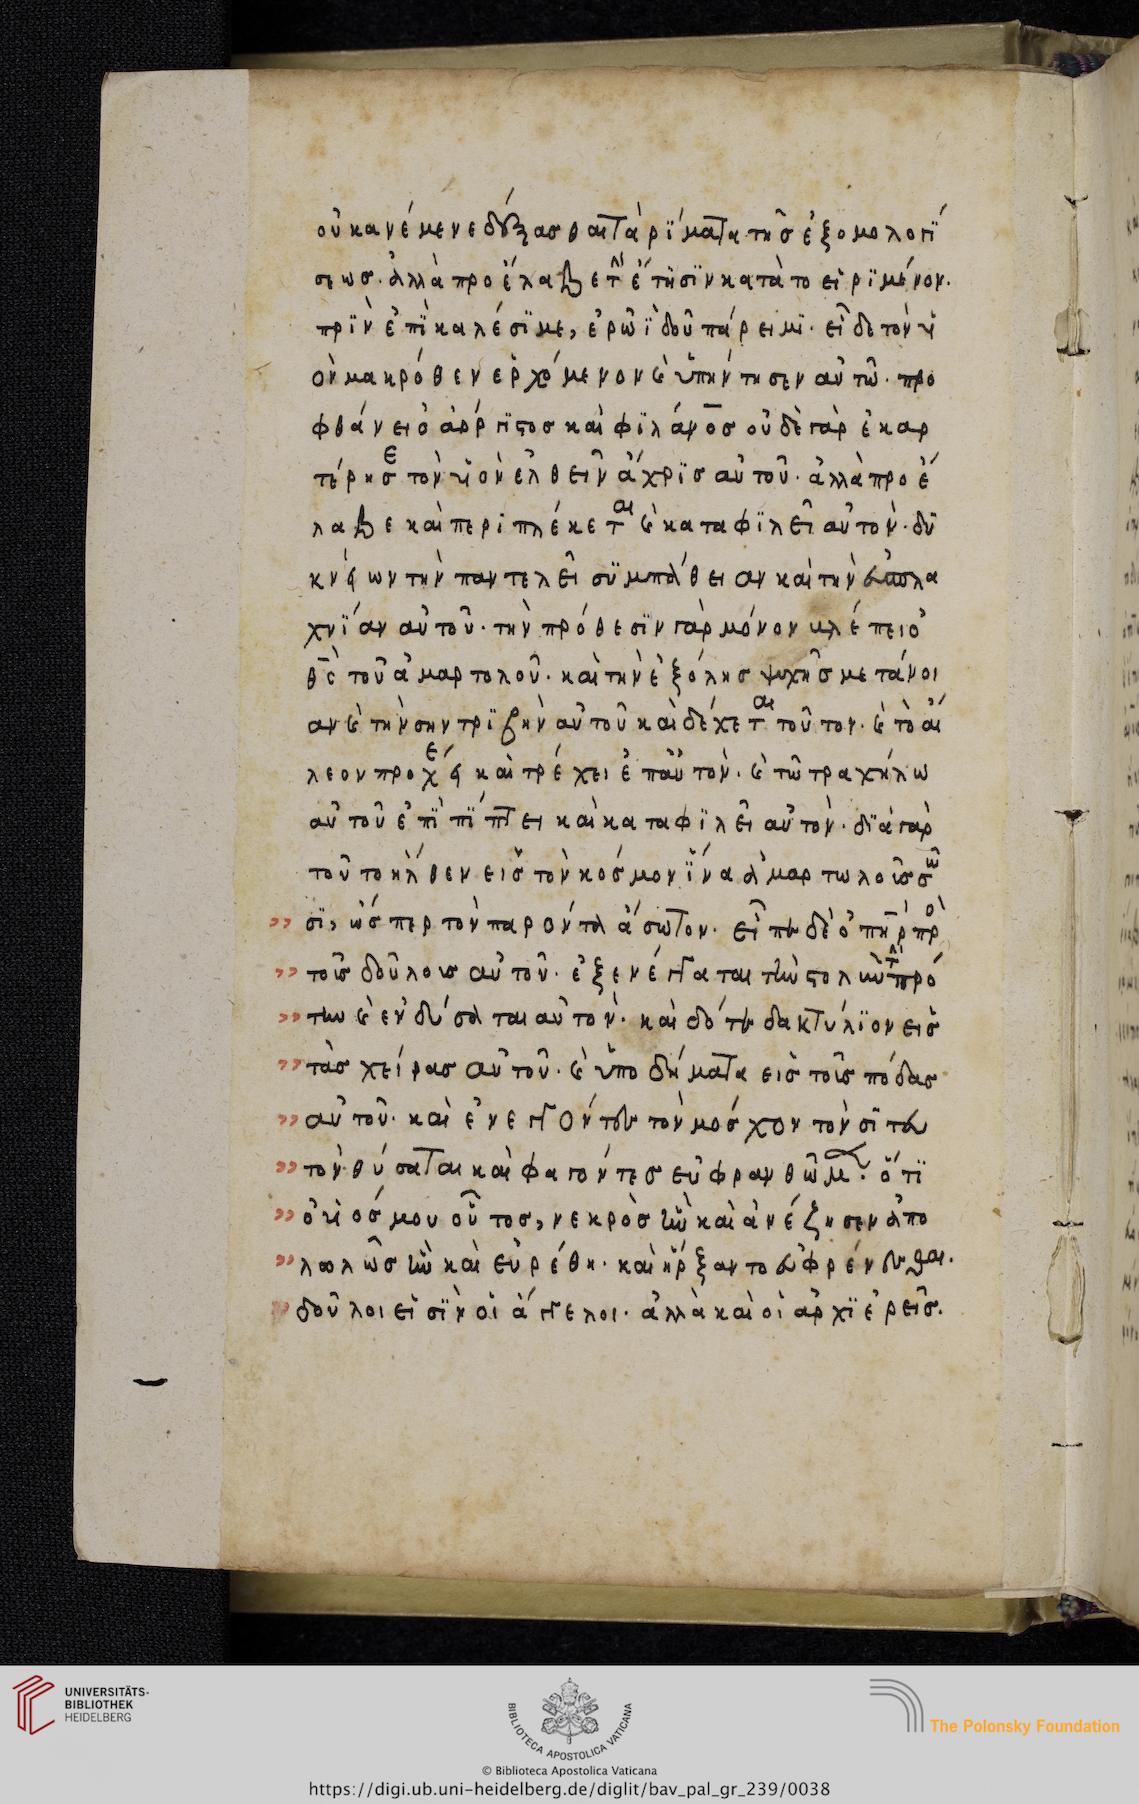 οὐκ ανέμενε δέξασθαι τὰ ρΐματα τησ ἐξομολογΐ
σεωσ. ἀλλὰ προέλαβε τὴν ἔτησϊν κατὰ το εἰρϊμένον.
πρϊν ἐπϊκαλέσϊ με, ἐρῶ ϊδοῦ πάρειμϊ. εἶδε τὸν υἱ
ὸν μακρόθεν ἐρχόμενον καὶ ὑπήντησεν αὐτῶ. προ
φθάνει ὁ ἀόργϊστοσ καὶ φϊλάνοσ οὐδὲ γὰρ ἐκαρ
τέρησε τὸν υἱὸν ἐλθεῖν ἄχρϊσ αὐτοῦ. ἀλλὰ προέ
λαβε καὶ περιπλέκεται καὶ καταφϊλεῖ αὐτὸν.
τὴν παντελεῖ συμπάθειαν καὶ τὴν εὐσπλα
χνΐαν αὐτοῦ. τὴν πρόθεσϊν γὰρ μόνον βλέπει ὁ
θσ τοῦ ἁμαρτολοῦ. καὶ τὴν ἐξόλησ ψυχῆσ μετάνοι
αν καὶ τὴν σηντρϊβὴν αὐτοῦ καὶ δέχεται τοῦτον. καὶ τὸ ἔ
λεον προχέει καὶ τρέχει ἐπαὐτὸν. καὶ τῶ τραχήλω
αὐτοῦ ἐπϊπΐπτει καὶ καταφϊλεῖ αὐτὸν. δϊὰ γὰρ
τοῦτο ἠλθεν εἰσ τὸν κόσμον ΐνα ἁμαρτωλοῦσ σώ
σϊ, ὥσπερ τὸν παρόντα ἄσωτον. εἶπεν δὲ ὁ πηρ πρὸ
τοῦσ δοῦλουσ αὐτοῦ. ἐξενέγκαται τὴν στολὴν τὴν πρό
την καὶ ἐνδύσαται αὐτὸν. καὶ δότε δακτυλϊον εἰσ
τὰσ χείρασ αὐτοῦ. καὶ ὑποδήματα εἰσ τοῦσ πόδασ
αὐτοῦ. καὶ ἐνεγκόντεσ τὸν μόσχον τὸν σϊτευ
τὸν θύσαται καὶ φαγόντεσ εὐφρανθῶμεν. ὅτϊ
ὁ υἱόσ μου οὗτοσ, νεκρὸσ ἦν καὶ ἀνέζησεν ἀπο
λωλὼσ ἦν καὶ εὑρέθη. καὶ ἤρξαντο εὐφρένεσθαι.
δοῦλοι εἰσϊν οἱ ἄγγελοι. ἀλλὰ καὶ οἱ ἀρχϊἐρεῖσ.
UNIVERSITÄTS-
BIBLIOTHEK
HEIDELBERG
BIBLIOTECA APOSTOLICA VATICANA
The Polonsky Foundation
© Biblioteca Apostolica Vaticana
https://digi.ub.uni-heidelberg.de/diglit/bav_pal_gr_239/0038